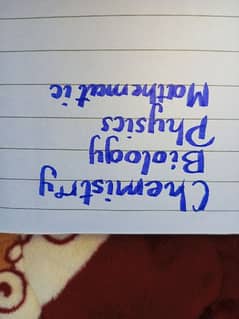 Chemistry
Biology
Physics
Mathematic